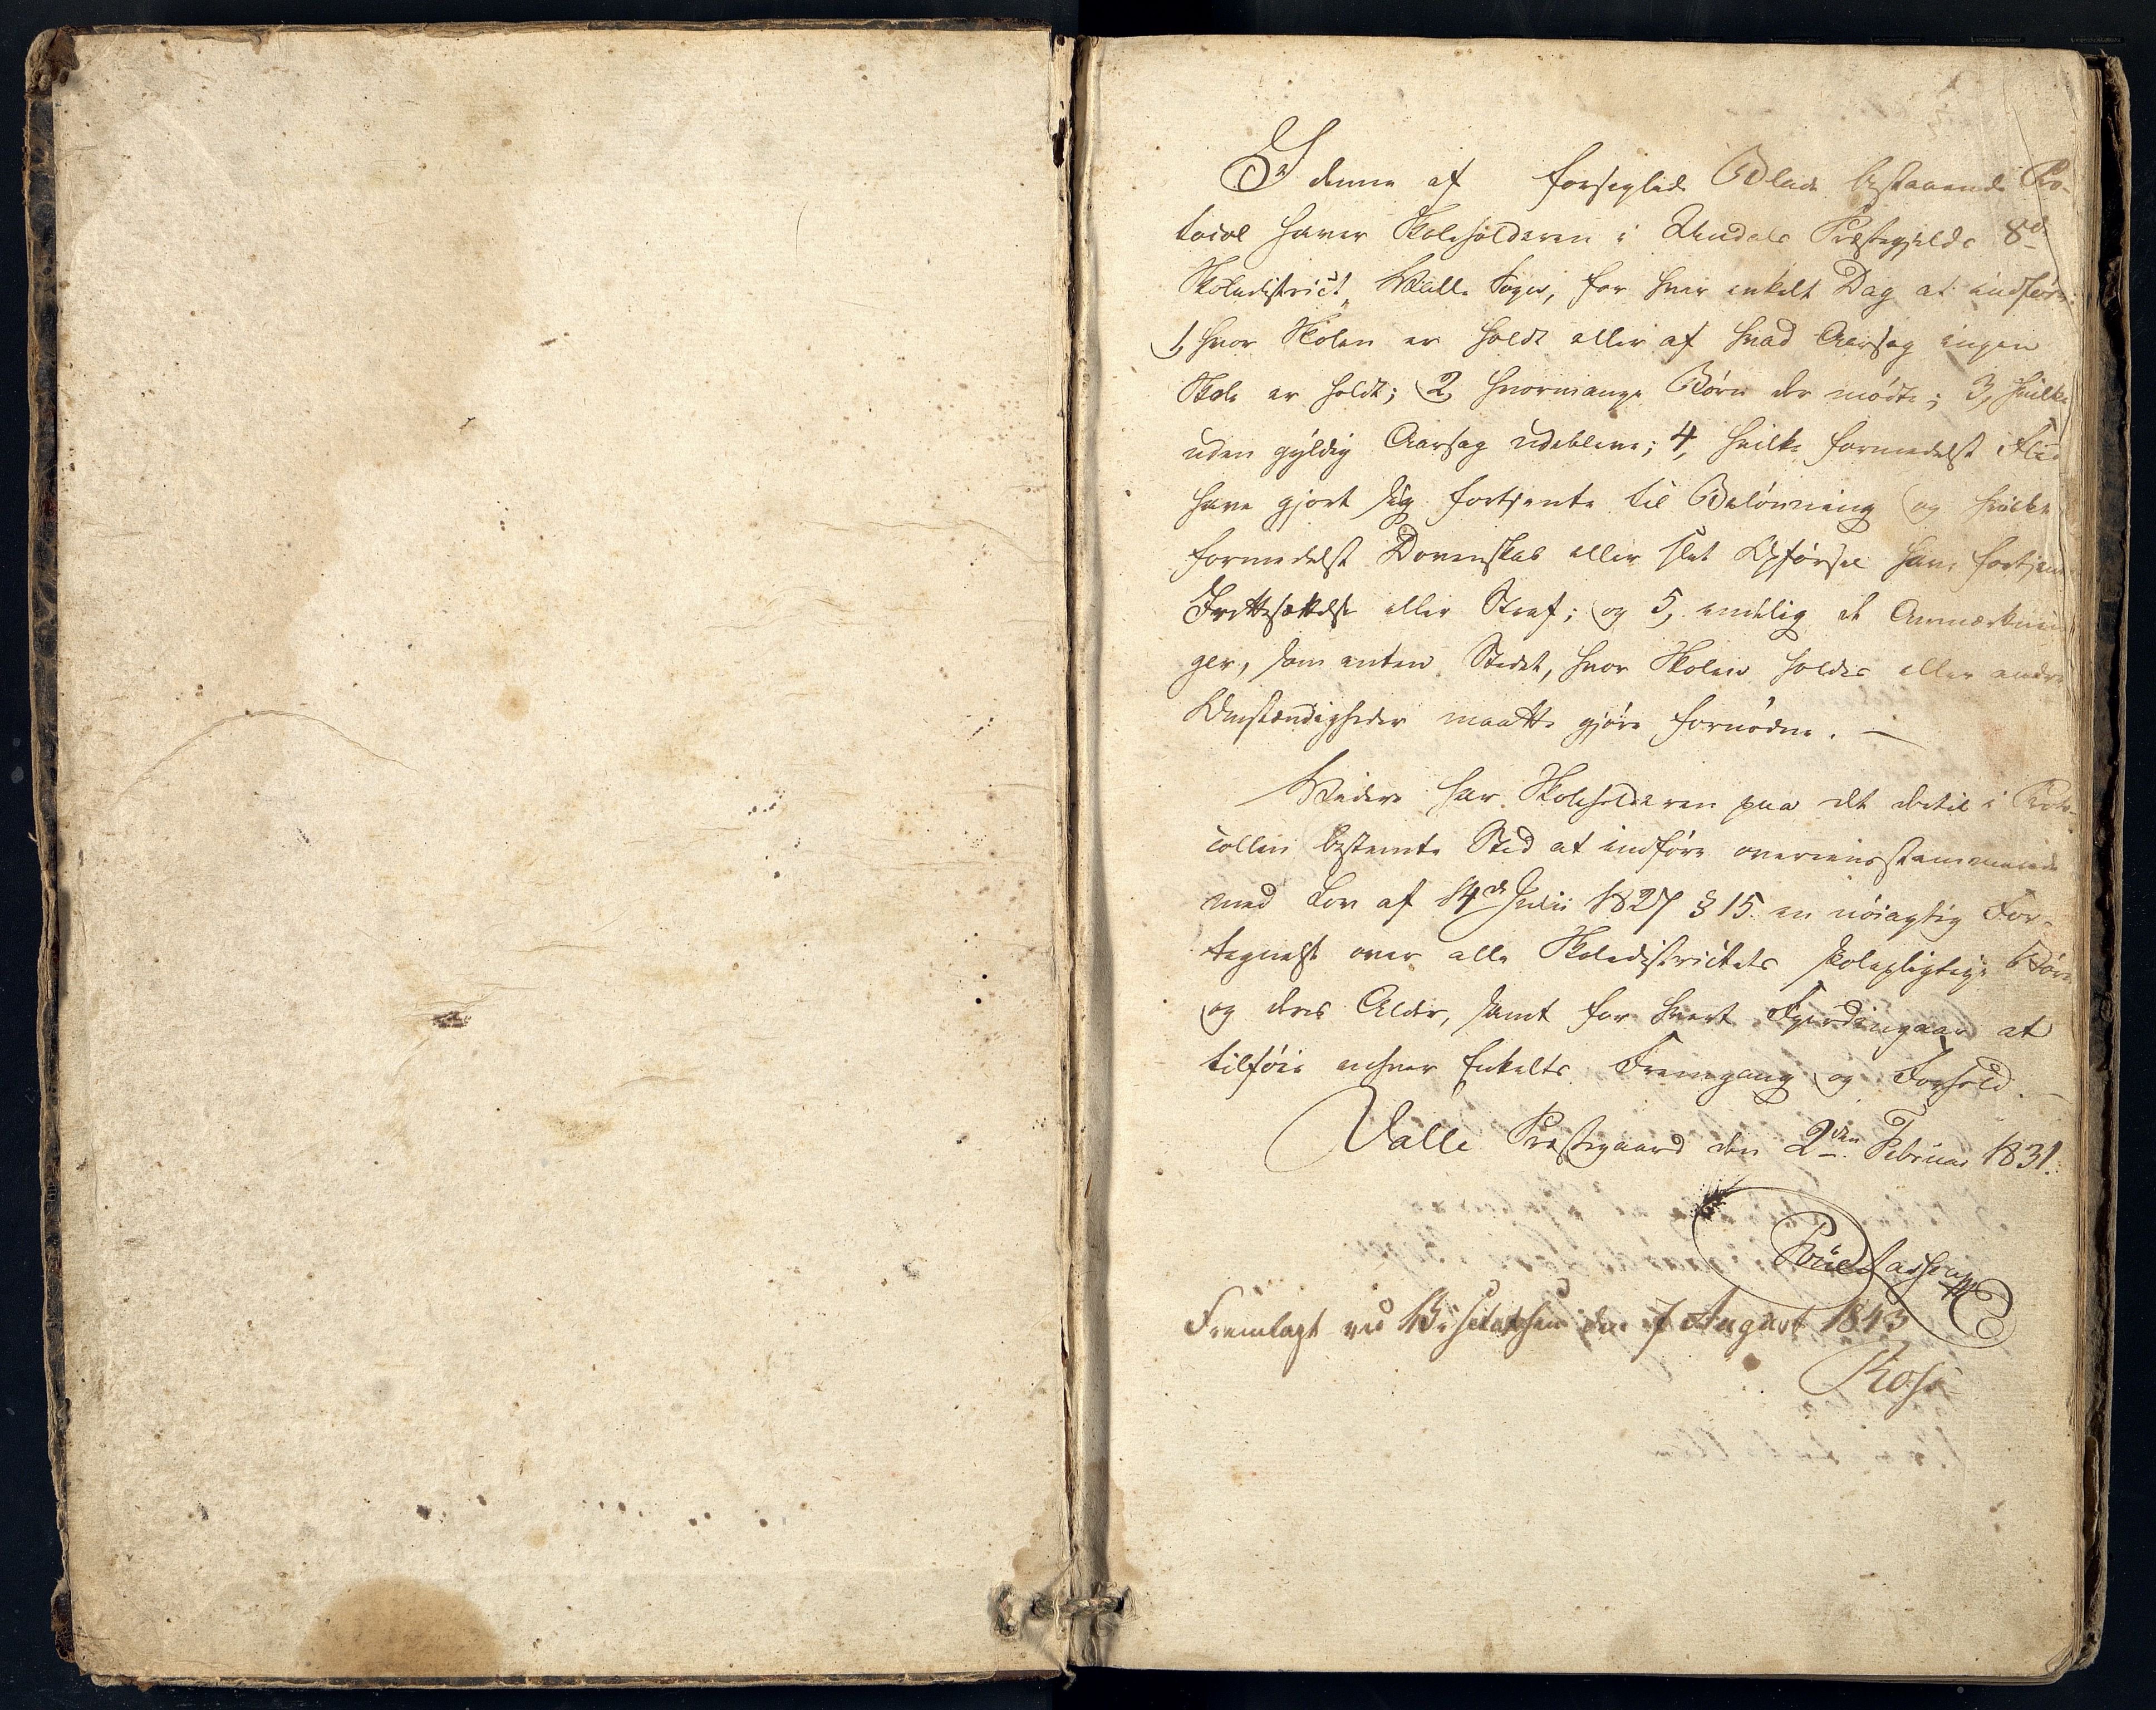 I denne af forseglede Blade bestaaende Pro-
tocol haver Skoleholderen i Undals Præstegjelds 8de
Skoledistrict, Walle Sogn, for hver enkelt Dag at indføre:
1, hvor Skolen er holdt eller af hvad Aarsag ingen
Skole er holdt; 2, hvormange Børn der mødte; 3, hvilke
uden gyldig Aarsag udebleve; 4, hvilke formedelst Flid
have gjort sig fortjente til Belønning og hvilke
formedelst Dovenskab eller slet Opførsel have fortjent
Irettesættelse eller Straf; og 5, endelig de Anmærknin-
ger, som enten Stedet, hvor Skolen holdes eller andre
Omstændigheder maatte gjøre fornødne. —
Videre har Skoleholderen paa det dertil i Proto-
collen bestemte Sted at indføre overeensstemmende
med Lov af 14de Julii 1827 § 15 en nøiagtig For-
tegnelse over alle Skoledistrictets skolepligtige Børn
og deres Alder, samt for hvert Fjerdingaar at
tilføie enhver Enkelts Fremgang og Forhold. —
Valle Præstegaard den 2den Februar 1831.
Fremlagt ved Visitatsen den 7 August 1843